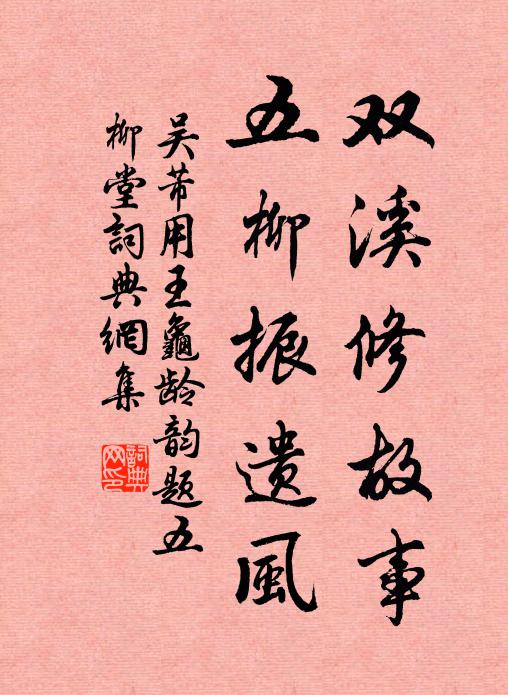 双溪修故事
五柳振遗風
吴芾用王龜龄韵题五
柳堂詞典網集
詞典
网印